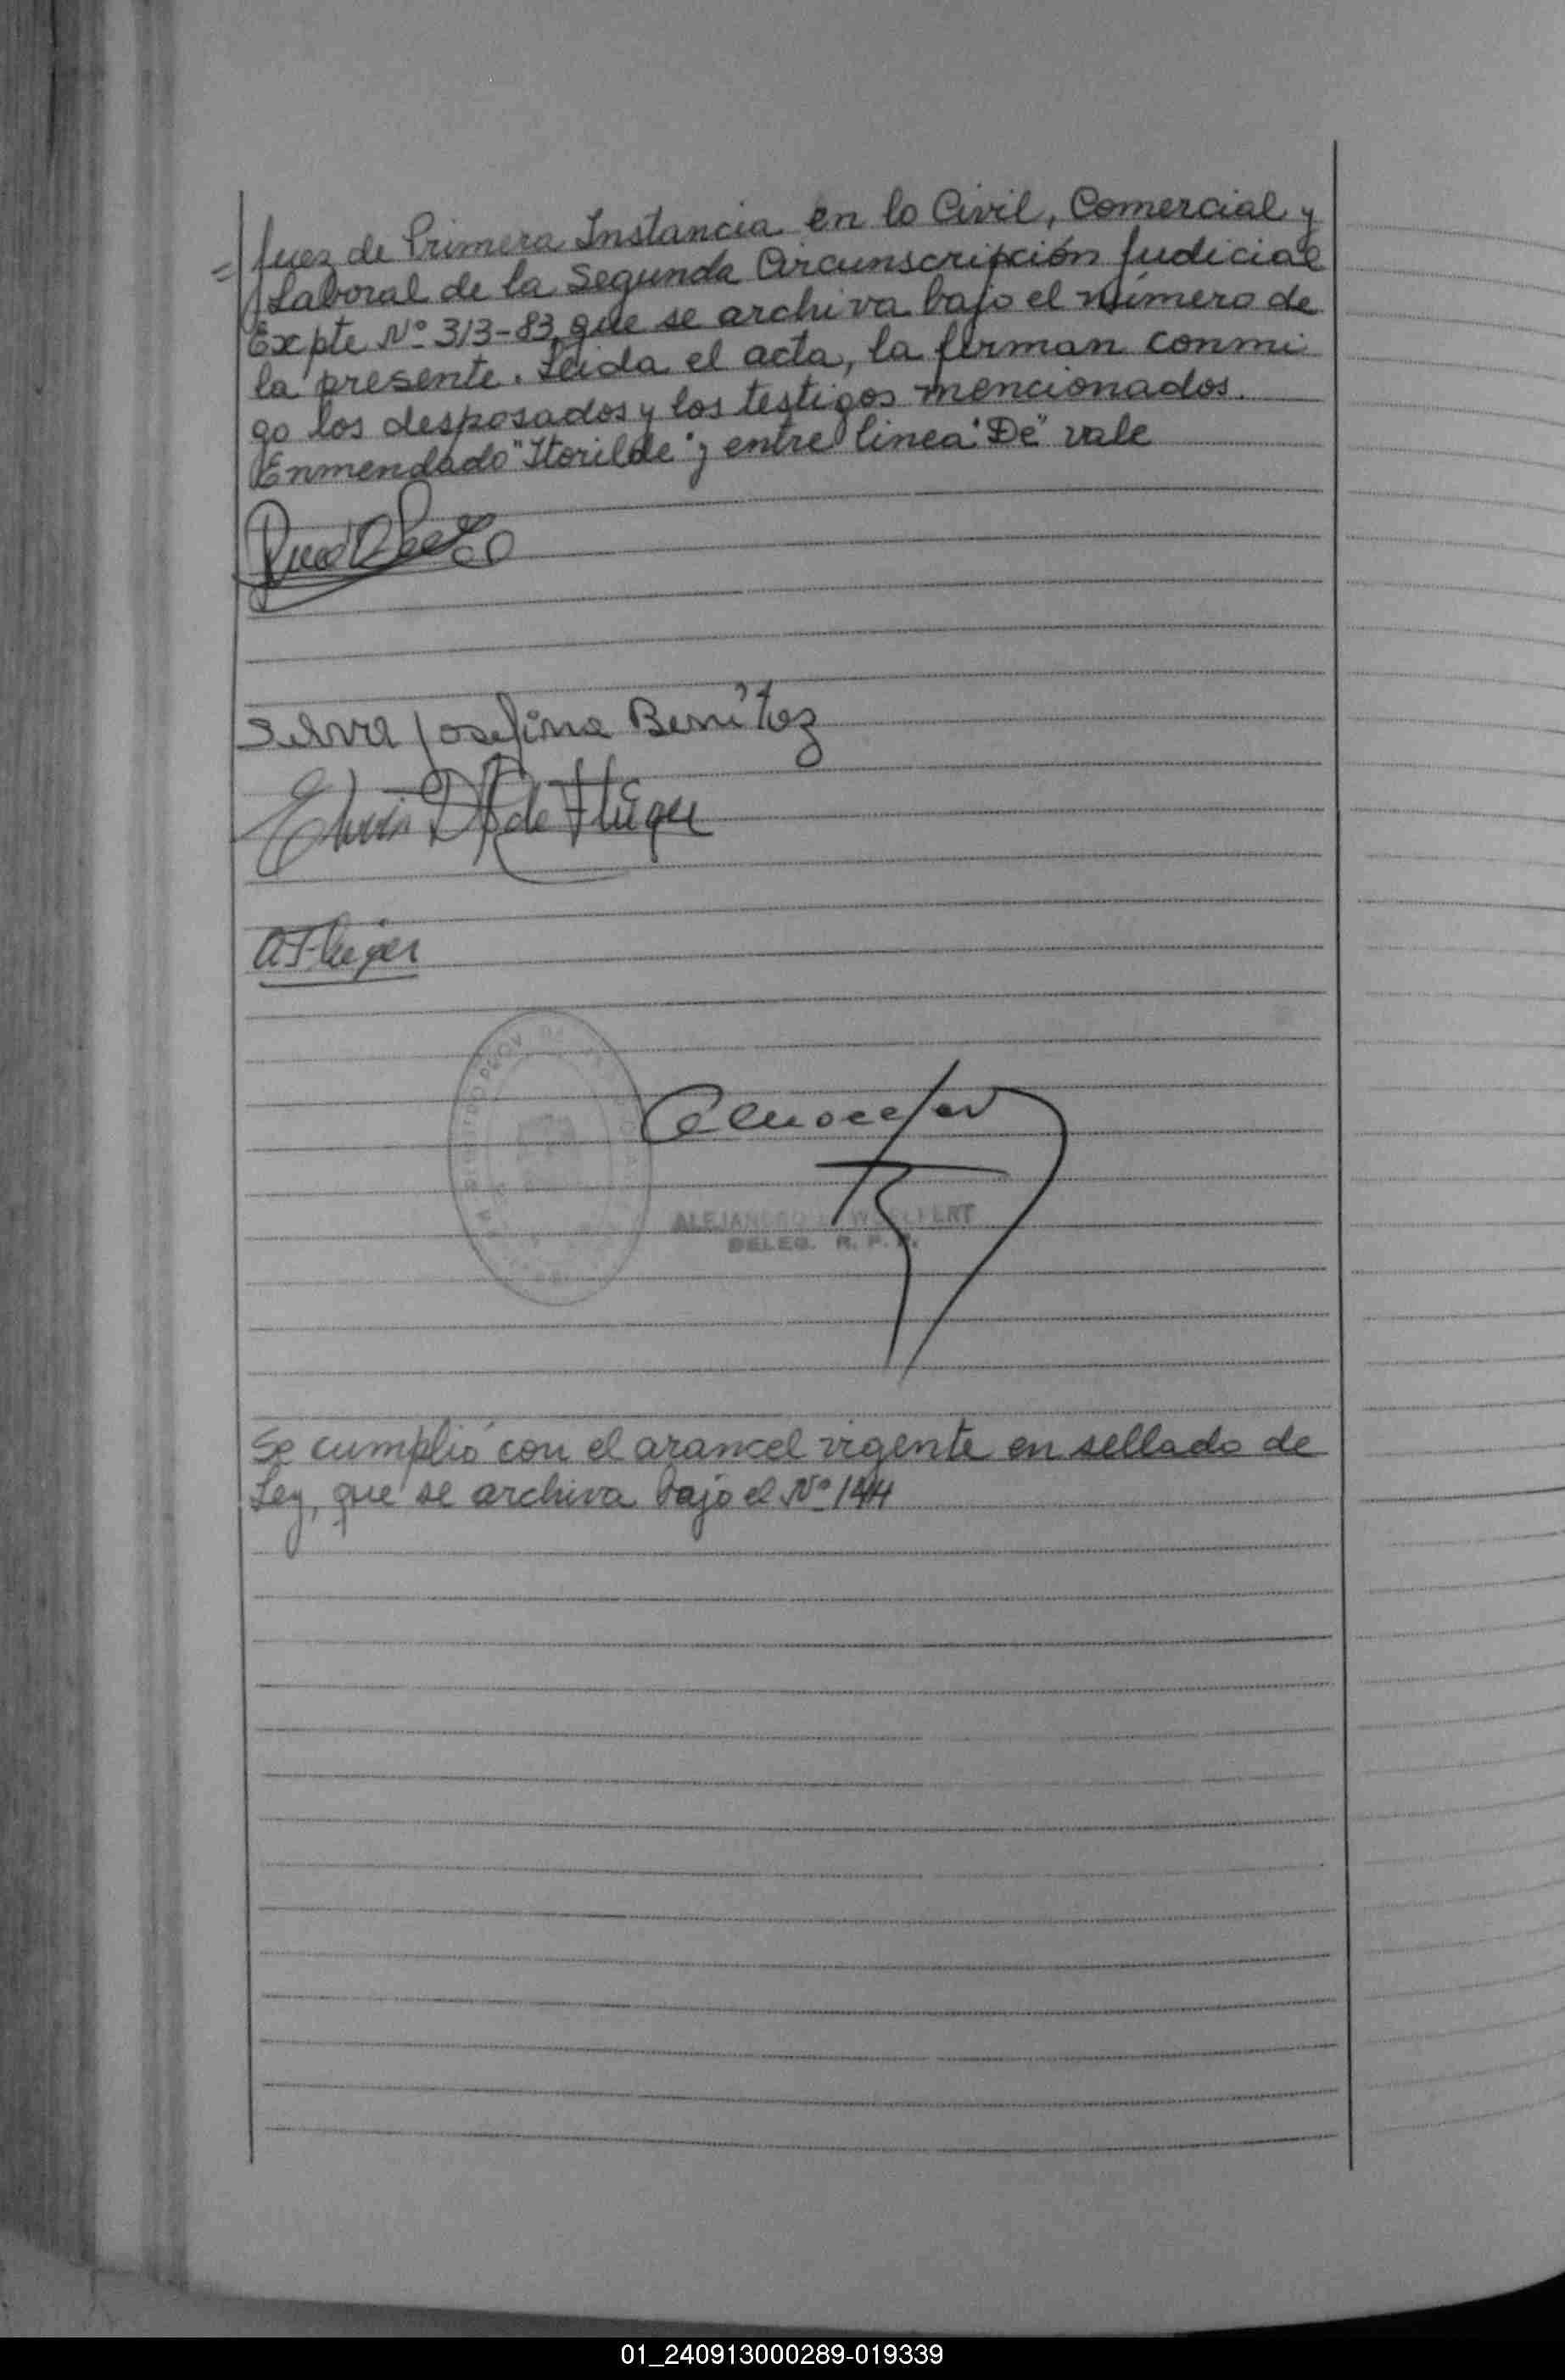 = Juez de Primera Instancia en lo Civil, Comercial y
Laboral de la Segunda Circunscripción Judicial
Expte Nº 313-83, que se archiva bajo el número de
la presente. Leida el acta, la firman conmi
go los desposados y los testigos mencionados.
Enmendado "Itorilde"; entre linea "De" vale
Selva Josefina Benítez
de Flüger
A Flüger
ALEJANDRO WOLFERT
DELEG. R. P. P.
Se cumplió con el arancel vigente en sellado de
Ley, que se archiva bajo el Nº 144
01_240913000289-019339